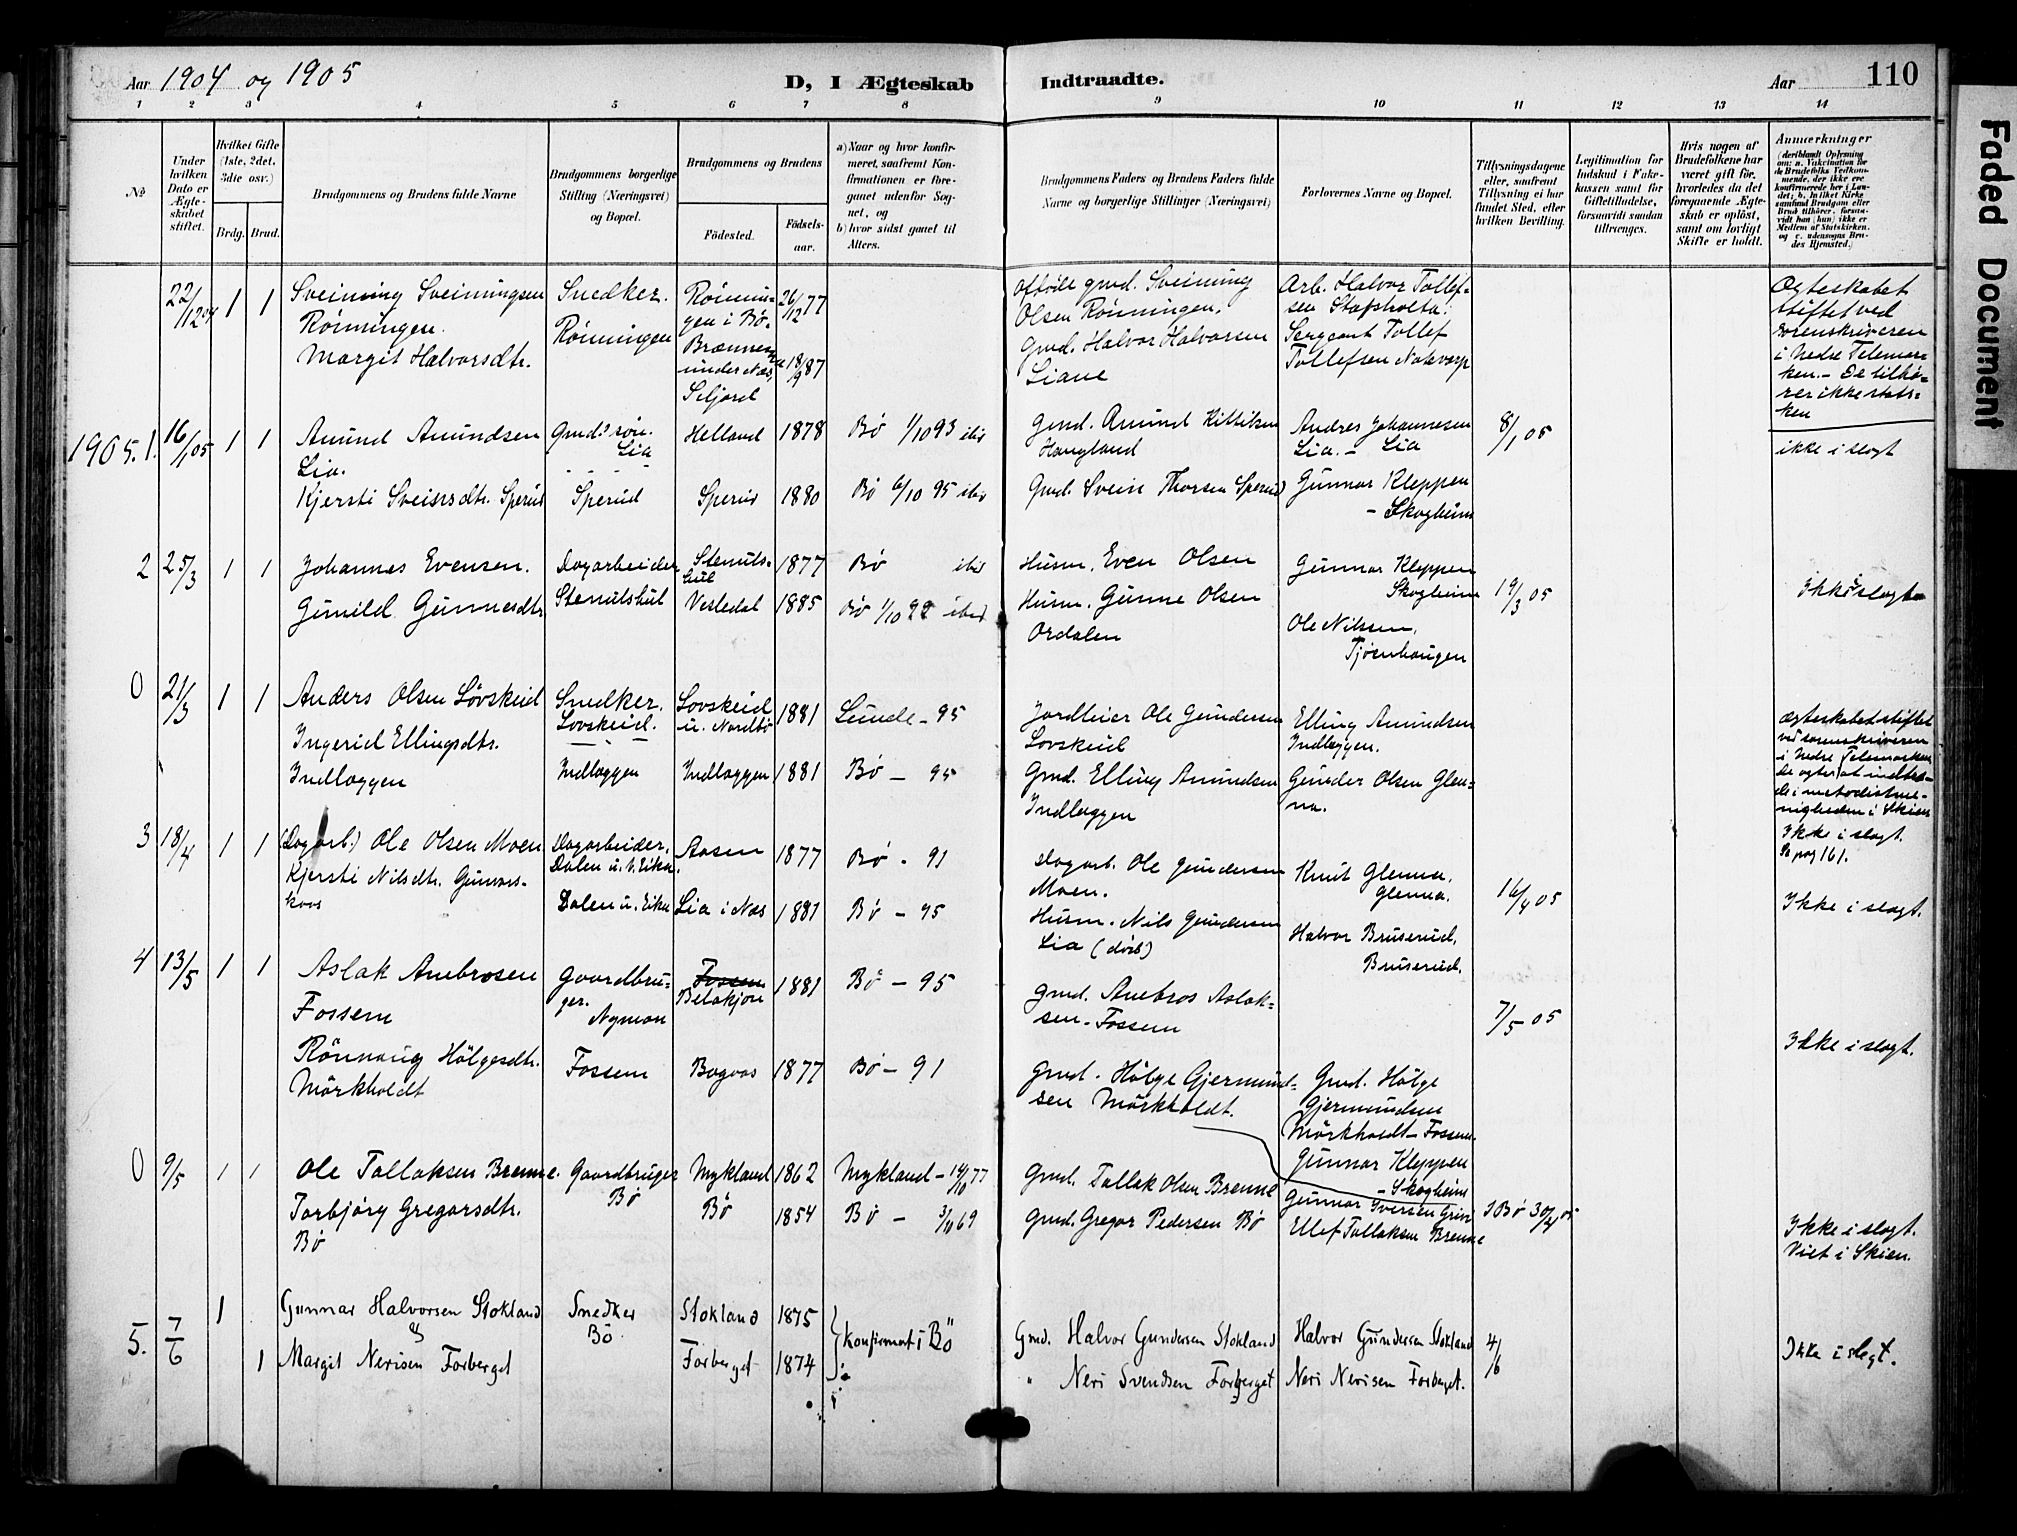 Aar 1904 og 1905
D, I Ægteskab
Indtraadte.
Aar
110
Faded Document
1 2 3 4 5 6 7 8 9 10 11 12 13 14
No
Under hvilken Dato er Ægteskabet stiftet.
Hvilket Gifte (1ste, 2det, 3die osv.)
Brdg. Brud.
Brudgommens og Brudens fulde Navne
Brudgommens borgerlige Stilling (Næringsvei) og Bopæl.
Brudgommens og Brudens
Fødested.
Fødselsaar.
a) Naar og hvor konfirmeret, saafremt Konfirmationen er foregaaet udenfor Sognet, og
b) hvor sidst gaaet til Alters.
Brudgommens Faders og Brudens Faders fulde Navne og borgerlige Stillinger (Næringsvei)
Forlovernes Navne og Bopæl.
Tillysningsdagene eller, saafremt Tillysning ei har fundet Sted, efter hvilken Bevilling.
Legitimation for Indskud i Enkekassen samt for Giftetilladelse, forsaavidt saadan tiltrænges.
Hvis nogen af Brudefolkene har været gift før, hvorledes da det foregaaende Ægteskab er opløst, samt om lovligt Skifte er holdt.
Anmærkninger
22/12 04 1 1
Sveinung Sveinungsen
Rönningen.
Margit Halvorsdtr.
Snedker.
Rönningen
Rönnin-
gen i Bø.
under Næs,
Siljord
26/12 77
18/9 87
gmd. Sveinung
Olsen Rönningen.
Gmd. Halvor Halvorsen
Liane
Arb. Halvor Tollef-
sen Stafsholta.
Sergeant Tollef
Tollefsen
Ægteskabet
stiftet ved
sorenskriveren
i Nedre Telemar-
ken. - De tilhø-
rer ikke stats-
ken
1905. 1. 16/1 05 1 1
Amund Amundsen
Lia.
Kjersti Sveinsdtr. Sperud
Gmds søn.
Lia
Sperud
Helland 1878 Bø 1/10 93 ibid
Sperud 1880 Bø 6/10 95 ibid
Gmd. Amund Kittilsen
Haugland
Gmd. Svein Thorsen Sperud
Andres Johannesen
Lia. - Lia
Gunnar Kleppen
- Skogheim
8/1 05
ikke i slegt
2 25/3 1 1
Johannes Evensen.
Gunild Gunnesdtr
Dagarbeider
Stenulshul
Stenuls-
hul
Vesledal
1877 Bø ibid
1885 Bø 1/10 99 ibid
Husm. Even Olsen
Husm. Gunne Olsen
Ordalen
Gunnar Kleppen
Skogheim
Ole Nilsen,
Tjønhaugen
19/3 05
Ikke i slegt
0 21/3 1 1
Anders Olsen Lövskeid
Ingerid Ellingsdtr.
Indlæggen
Snedker.
Lovskeid.
Indlæggen
Lovskeid
u. Nordbø
Indlæggen
1881 Lunde - 95
1881 Bø - 95
Jordleier Ole Gundersen
Lovskeid
Gmd. Elling Amundsen
Indlæggen
Elling Amundsen
Indlæggen.
Gunder Olsen Glen-
na.
Ægteskabet stiftet
ved sorenskriveren
i Nedre Telemarken
De agter at indtræ-
de i metodistme-
nigheden i Skien
Ikke i slegt.
Se pag 161.
3 18/4 1 1
(Dagarb.) Ole Olsen Moen
Kjersti Nilsdtr. Gunvors-
kaas
Dagarbeider.
Dalen u. N. Eika.
Dalen u. Eika
Aasen 1877 Bø - 91
Lia i Næs 1881 Bø - 95
Dagarb. Ole Gundersen
Moen.
Husm. Nils Gundersen
Lia (død)
Knut Glenna,
Glenna.
Halvor Bruserud,
Bruserud.
16/4 05
Ikke i slegt.
4 13/5 1 1
Aslak Ambrosen
Fossem
Rönnaug Hölgesdtr.
Mörkholdt
Gaardbru-
ger.
Nyman
Fossem
Fossem
1881 Bø - 95
Bogaas 1877 Bø - 91
Gmd. Ambros Aslak-
sen. Fossem
Gmd. Hölge Gjermund-
sen Mörkholdt.
Gmd. Hölge
Gjermundsen
Mörkholdt - Fossem.
Gunnar Kleppen
- Skogheim
7/5 05
Ikke i slegt.
0 9/5 1 1
Ole Tallaksen Brenne.
Torbjörg Gregarsdtr.
Bö
Gaardbruger
Bö
Mykland 1862 Mykland - 14/10 77
Bö 1854 Bö - 3/11 69
Gmd. Tallak Olsen Brenne
Gmd. Gregar Pedersen Bö
Gunnar Iversen Grivi
Ellef Tallaksen Brenne
I Bø 30/4 05
Ikke i slegt.
Viet i Skien.
5. 7/6 1
1
Gunnar Halvorsen Stokland
og
Margit Nerisen Forberget
Snedker
Bö
Stokland 1875
Forberget 1874
konfirmert i Bö
Gmd. Halvor Gundersen Stokland
" Neri Svendsen Forberget
Halvor Gundersen Stokland
Neri Nerisen Forberget.
4/6
Ikke i slegt.